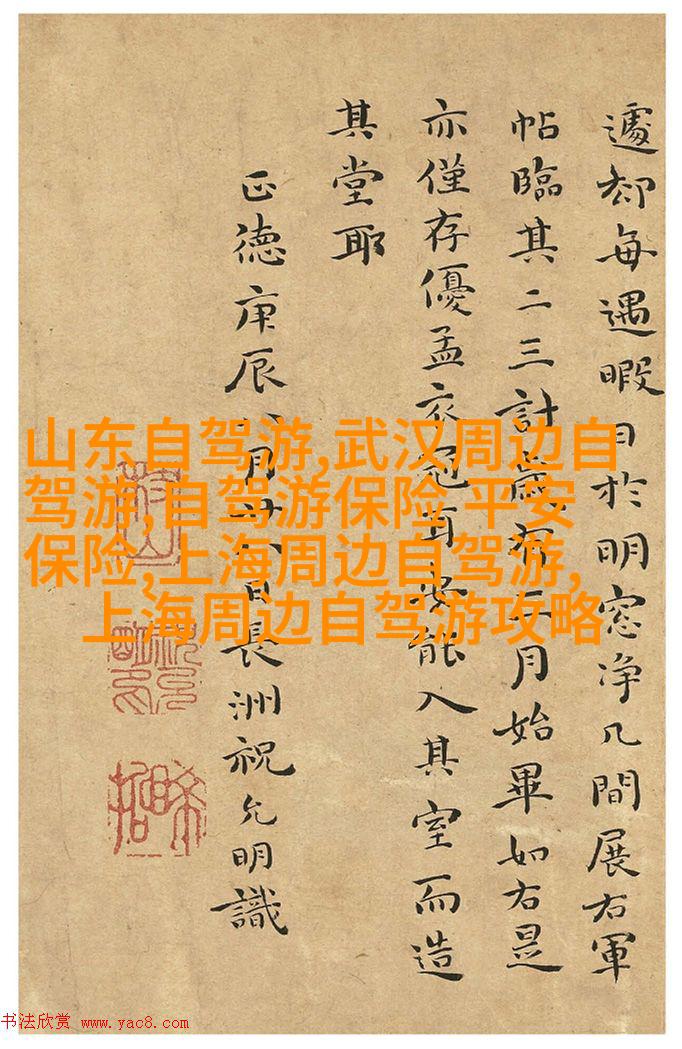 遽却每遇暇日於明窓净几間展右軍
帖臨其二三計歲有二月始畢如右是
亦僅存優孟衣冠耳安能入其室而造
其堂耶
正德庚辰八月廿八日長洲祝允明識
枝山
山东自驾游,武汉周边自
驾游,自驾游保险 平安
保险,上海周边自驾游,
上海周边自驾游攻略
书法欣赏 www.yac8.com